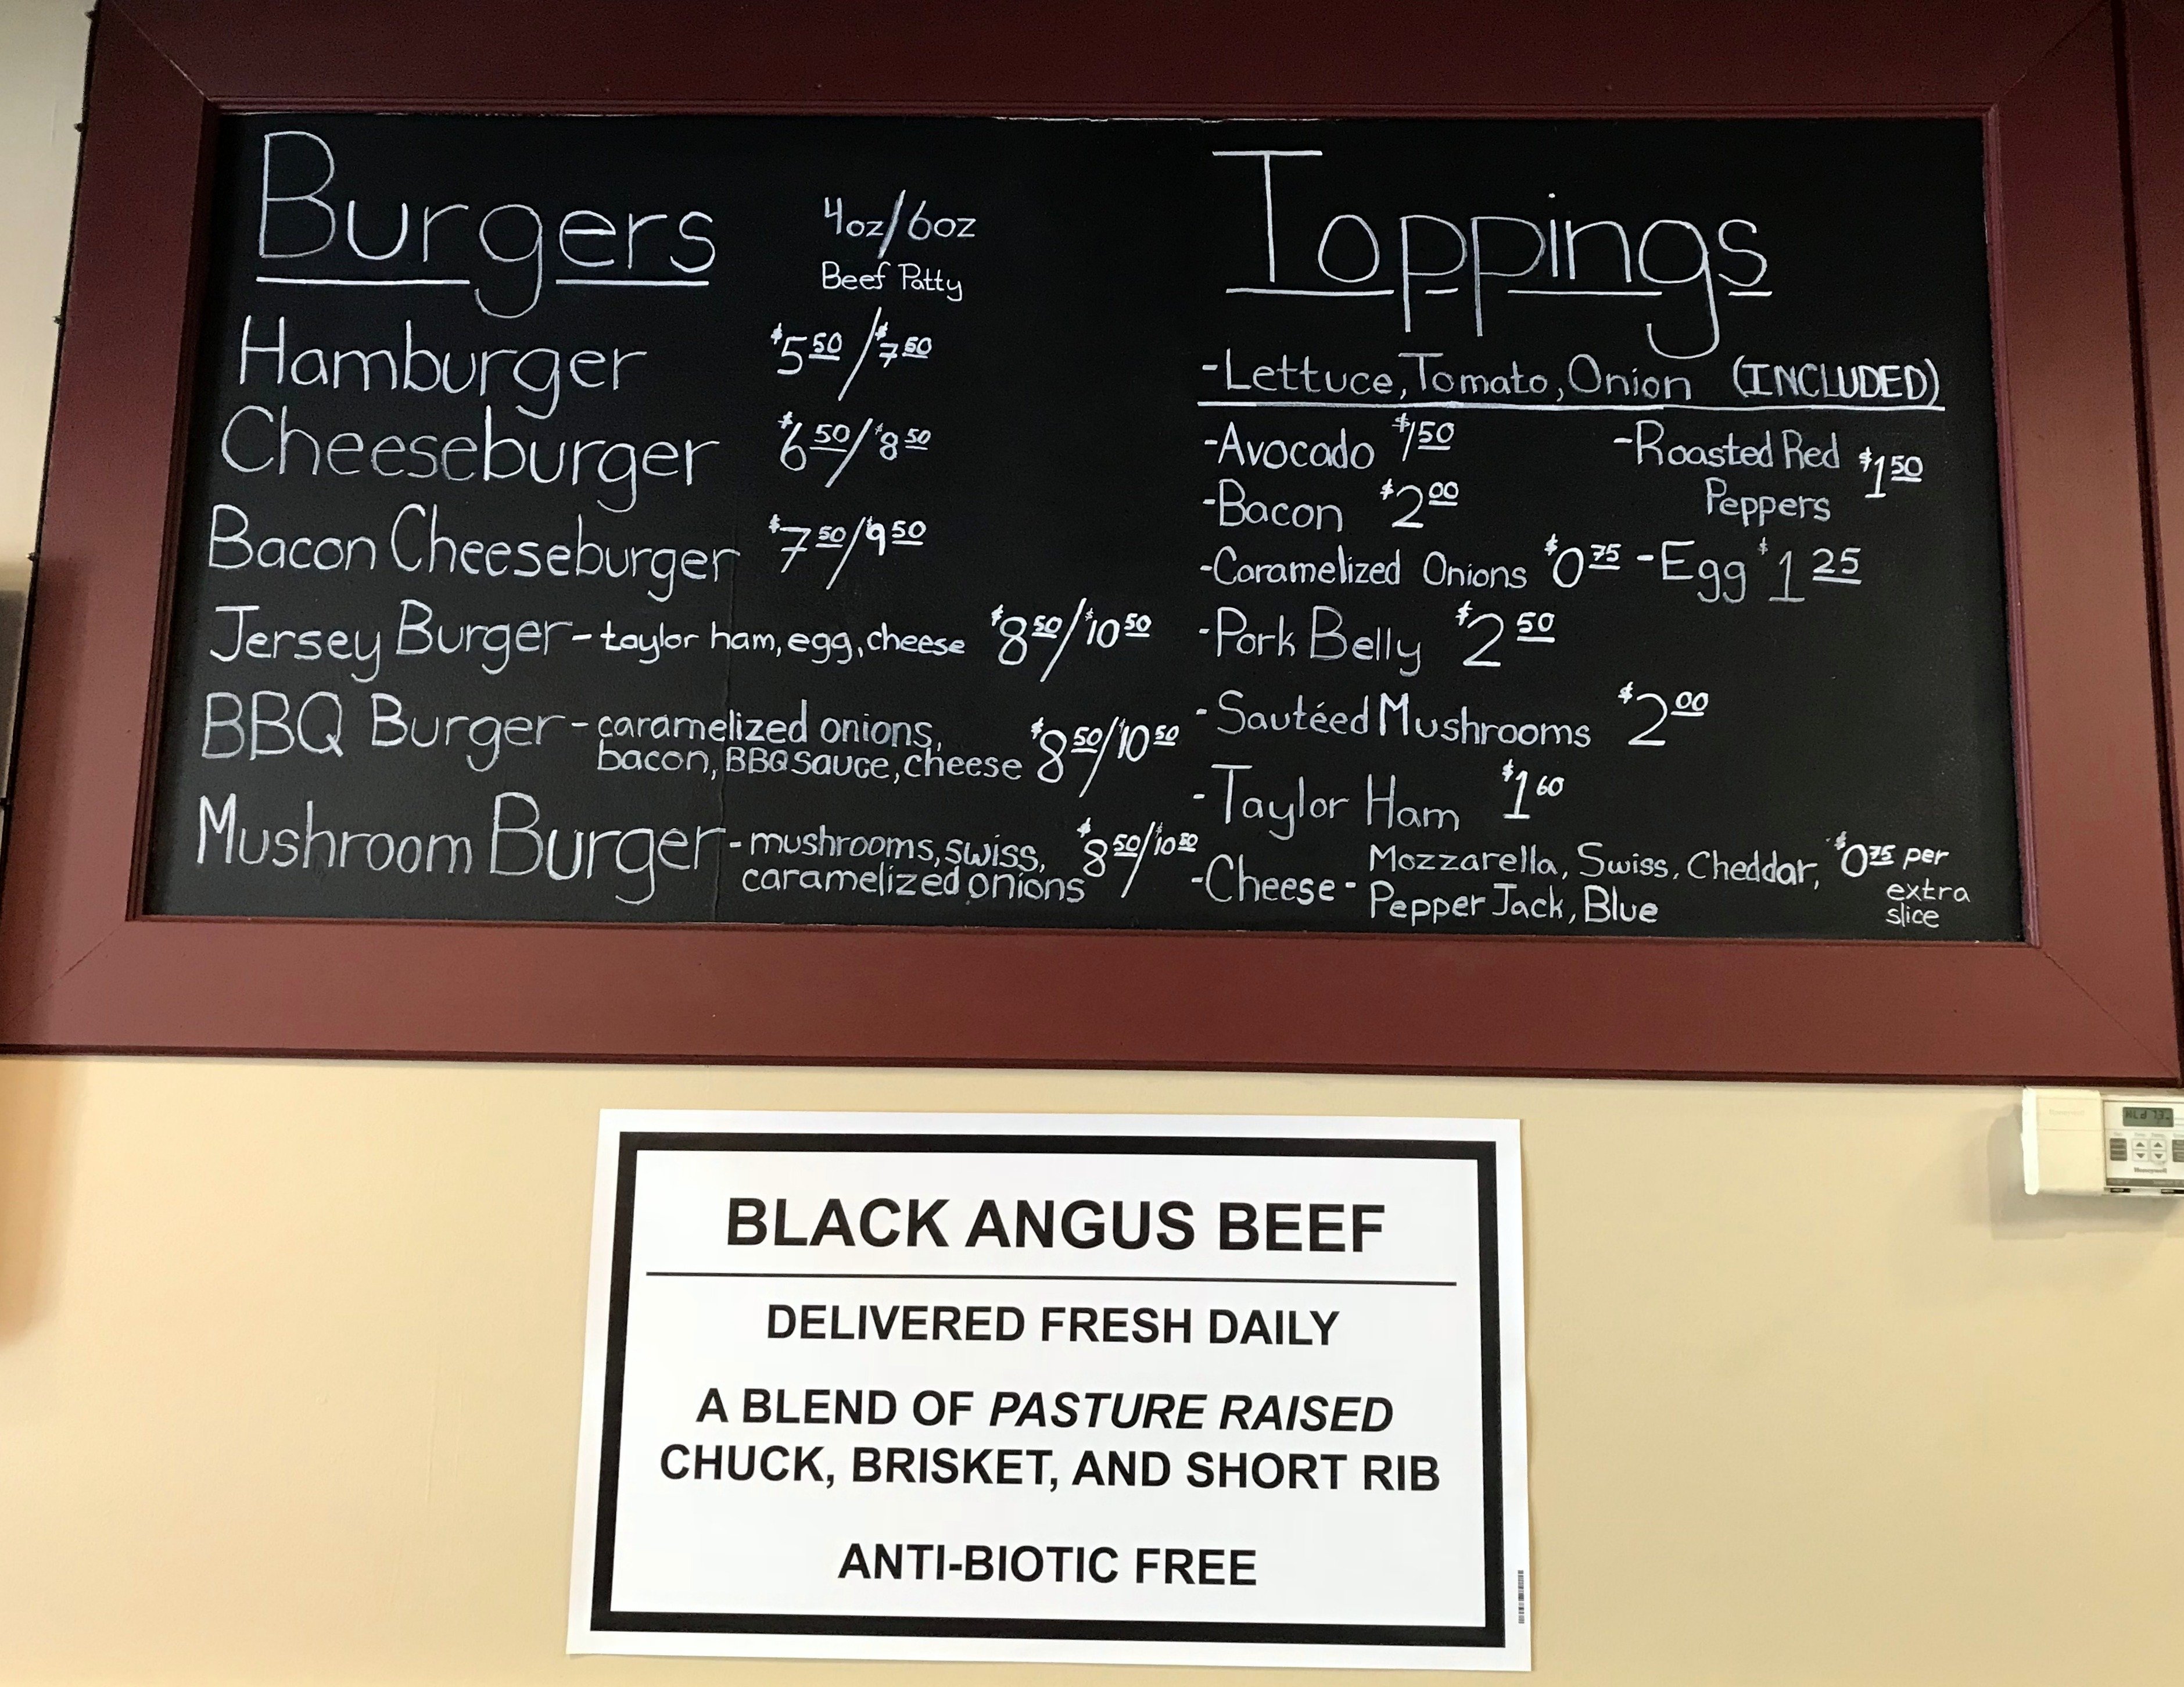 Burgers 4oz/6oz
Beef Patty
Hamburger $5.50/$7.50
Cheeseburger $6.50/$8.50
Bacon Cheeseburger $7.50/$9.50
Jersey Burger - taylor ham, egg, cheese $8.50/$10.50
BBQ Burger - caramelized onions, $8.50/$10.50
bacon, BBQ sauce, cheese
Mushroom Burger - mushrooms, swiss, $8.50/$10.50
caramelized onions
Toppings
-Lettuce, Tomato, Onion (INCLUDED)
-Avocado $1.50 -Roasted Red $1.50
Peppers
-Bacon $2.00
-Caramelized Onions $0.75 -Egg $1.25
-Pork Belly $2.50
-Sautéed Mushrooms $2.00
-Taylor Ham $1.60
-Cheese- Mozzarella, Swiss, Cheddar, $0.75 per
Pepper Jack, Blue extra
slice
BLACK ANGUS BEEF
DELIVERED FRESH DAILY
A BLEND OF PASTURE RAISED
CHUCK, BRISKET, AND SHORT RIB
ANTI-BIOTIC FREE
Honeywell